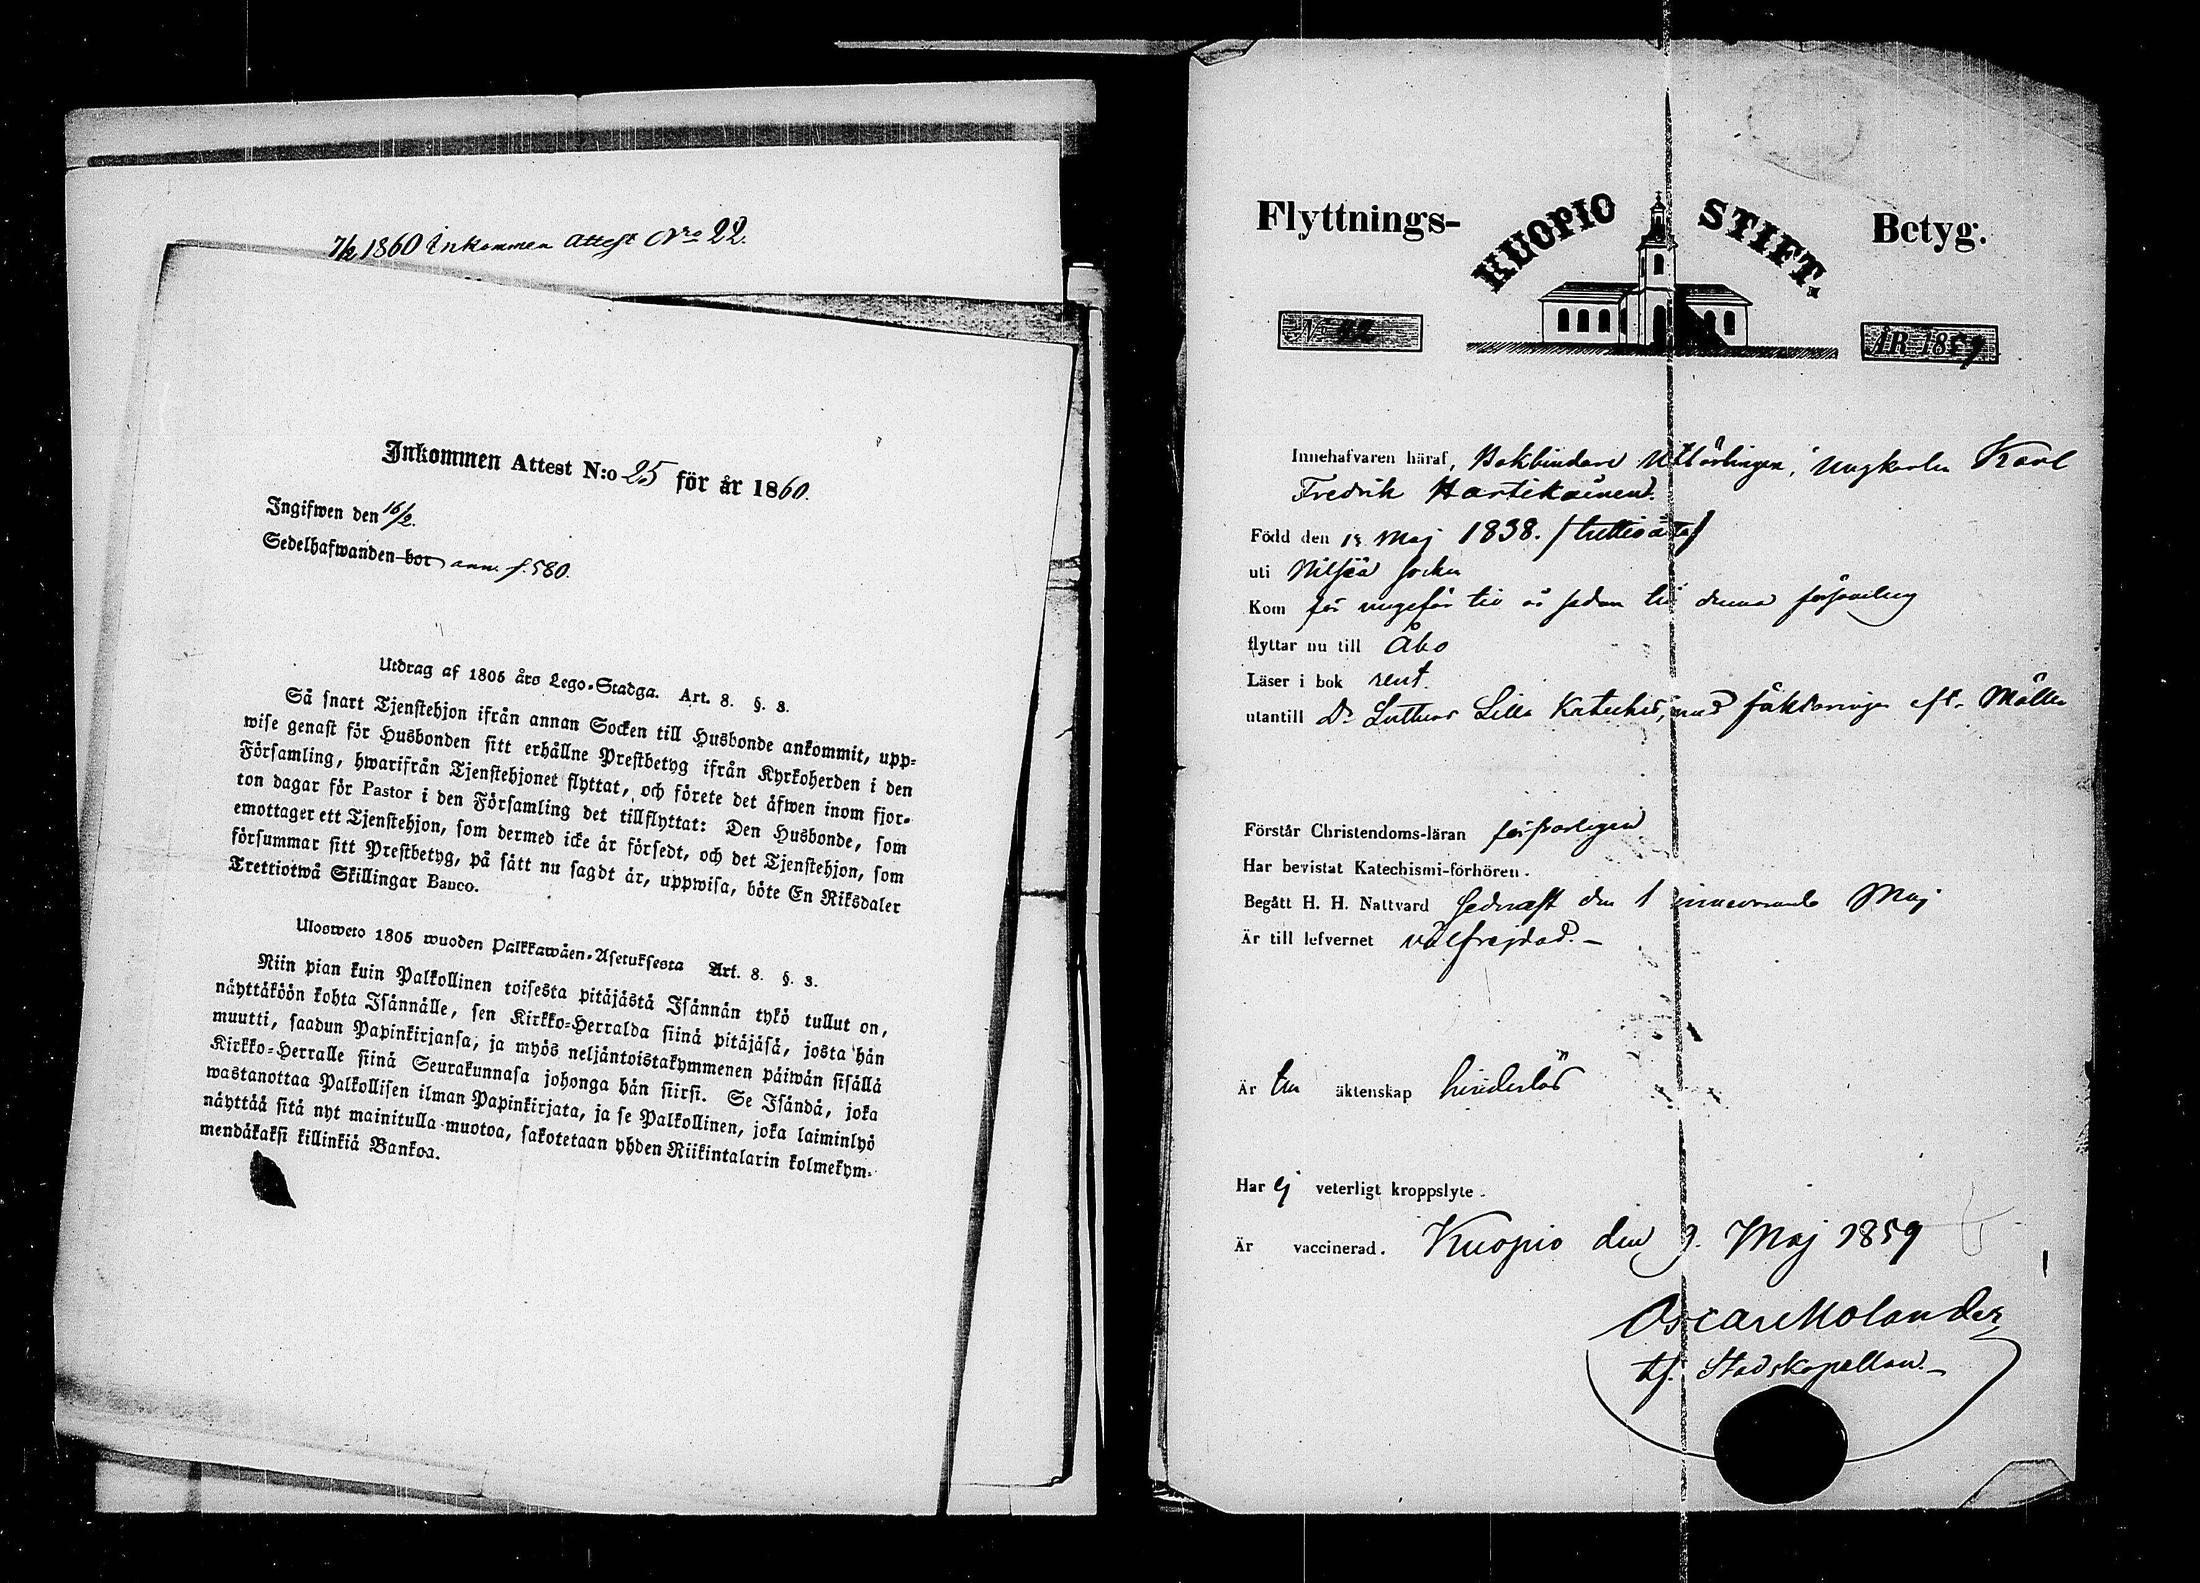 7/2 1860 Inkommen Attest Nro 22.
Inkommen Attest N:o 25 för år 1860.
Ingifwen den 16/2.
Sedelhafwanden bor ann. f. 580.
Utdrag af 1805 års Lego-Stadga. Art. 8. §. 3.
Så snart Tjenstehjon ifrån annan Socken till Husbonde ankommit, upp-
wise genast för Husbonden sitt erhållne Prestbetyg ifrån Kyrkoherden i den
Församling, hwarifrån Tjenstehjonet flyttat, och förete det äfwen inom fjor-
ton dagar för Pastor i den Församling det tillflyttat: Den Husbonde, som
emottager ett Tjenstehjon, som dermed icke är försedt, och det Tjenstehjon, som
försummar sitt Prestbetyg, på sätt nu sagdt är, uppwisa, böte En Riksdaler
Trettiotwå Skillingar Banco.
Ulosweto 1805 wuoden Palkkawäen-Asetuksesta Art. 8. §. 3.
Niin pian kuin Palkollinen toisesta pitäjästä Isännän tykö tullut on,
näyttäköön kohta Isännälle, sen Kirkko-Herralda siinä pitäjäsä, josta hän
muutti, saadun Papinkirjansa, ja myös neljäntoistakymmenen päiwän sisällä
Kirkko-Herralle siinä Seurakunnasa johonga hän siirsi. Se Isändä, joka
wastanottaa Palkollisen ilman Papinkirjata, ja se Palkollinen, joka laiminlyö
näyttää sitä nyt mainitulla muotoa, sakotetaan yhden Riikintalarin kolmekym-
mendäkaksi killinkiä Bankoa.
Flyttnings- KUOPIO STIFT. Betyg.
N:o ÅR 1859
Innehafvaren häraf, Bokbindare Lärlingen, Ungkarlen Karl
Fredrik Hartikainen.
Född den Maj 1838. /trettioåtta/
uti Nilsiä Socken
Kom för ungefär tio år sedan till denna församling
flyttar nu till Åbo
Läser i bok rent.
utantill Dr Luthers Lilla Kateches, med förklaringen
Förstår Christendoms-läran försvarligen
Har bevistat Katechismi-förhören.
Begått H. H. Nattvard sednast den 1 innevarande Maj
Är till lefvernet välfrejdad. -
Är till äktenskap hinderlös
Har ej veterligt kroppslyte.
Är vaccinerad. Kuopio den 9. Maj 1859
Oscar Molander
tf. Stadskapellan. -